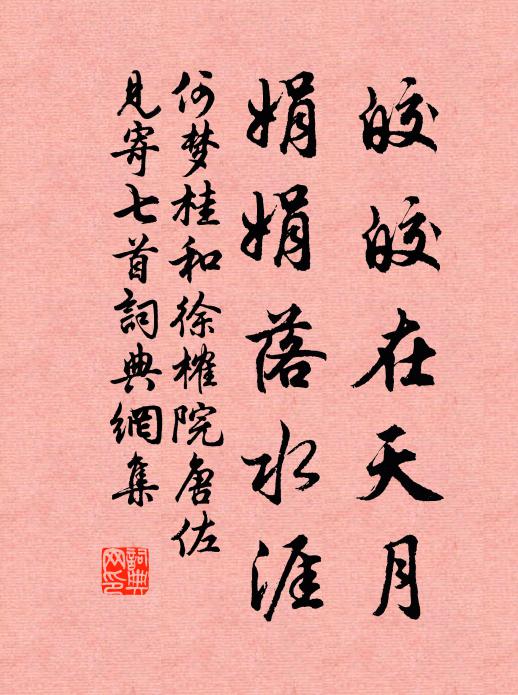 皎皎在天月
娟娟落水涯
何梦桂和徐榷院唐佐
見寄七首詞典網集
詞典網印